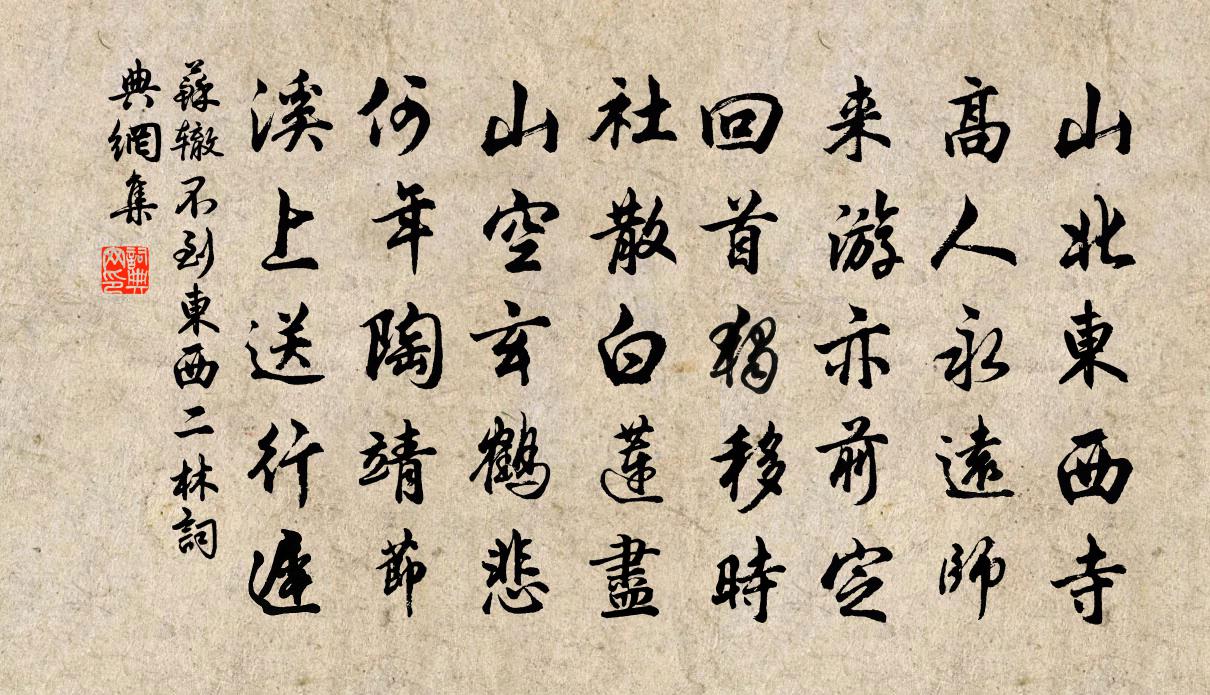 山北東西寺
高人永遠師
来游亦前定
回首獨移時
社散白蓮盡
山空玄鶴悲
何年陶靖節
溪上送行遲
蘇辙不到東西二林詞
典網集
詞典
网印